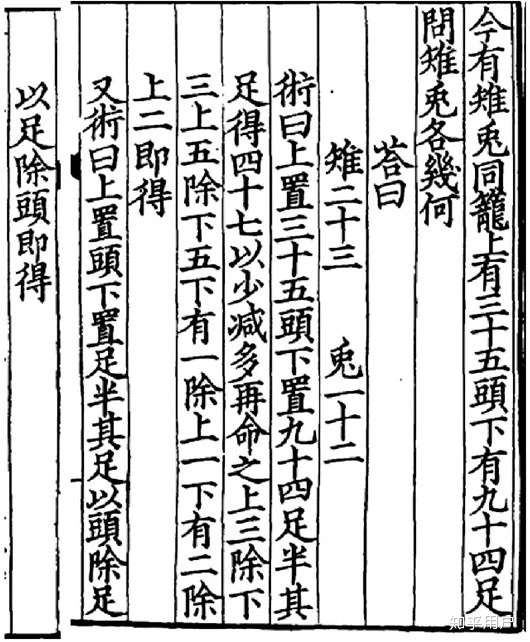 今有雉兎同籠上有三十五頭下有九十四足
問雉兎各幾何
荅曰
雉二十三 兎一十二
術曰上置三十五頭下置九十四足半其
足得四十七以少减多再命之上三除下
三上五除下五下有一除上一下有二除
上二即得
又術曰上置頭下置足半其足以頭除足
以足除頭即得
知乎用户